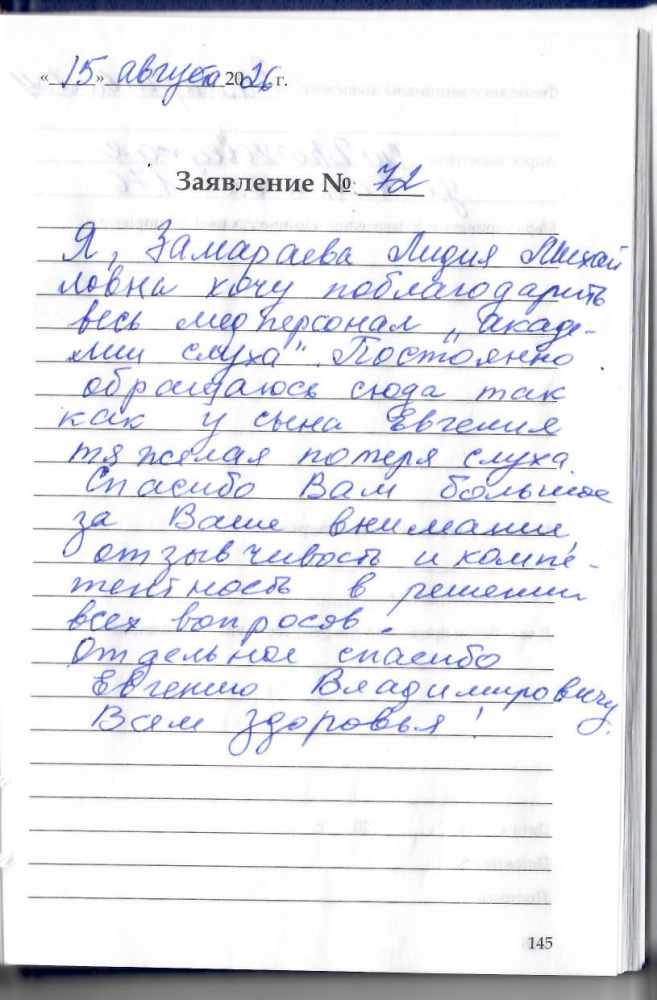 «15» августа 2026 г.
Заявление № 72
Я, Замараева Лидия Михай
ловна хочу поблагодарить
весь медперсонал „Акаде-
мии слуха" Постоянно
обращаюсь сюда так
как у сына Евгения
тяжелая потеря слуха.
Спасибо Вам большое
за Ваше внимание,
отзывчивость и компе-
тентность в решении
всех вопросов.
Отдельное спасибо
Евгению Владимировичу.
Всем здоровья!
145